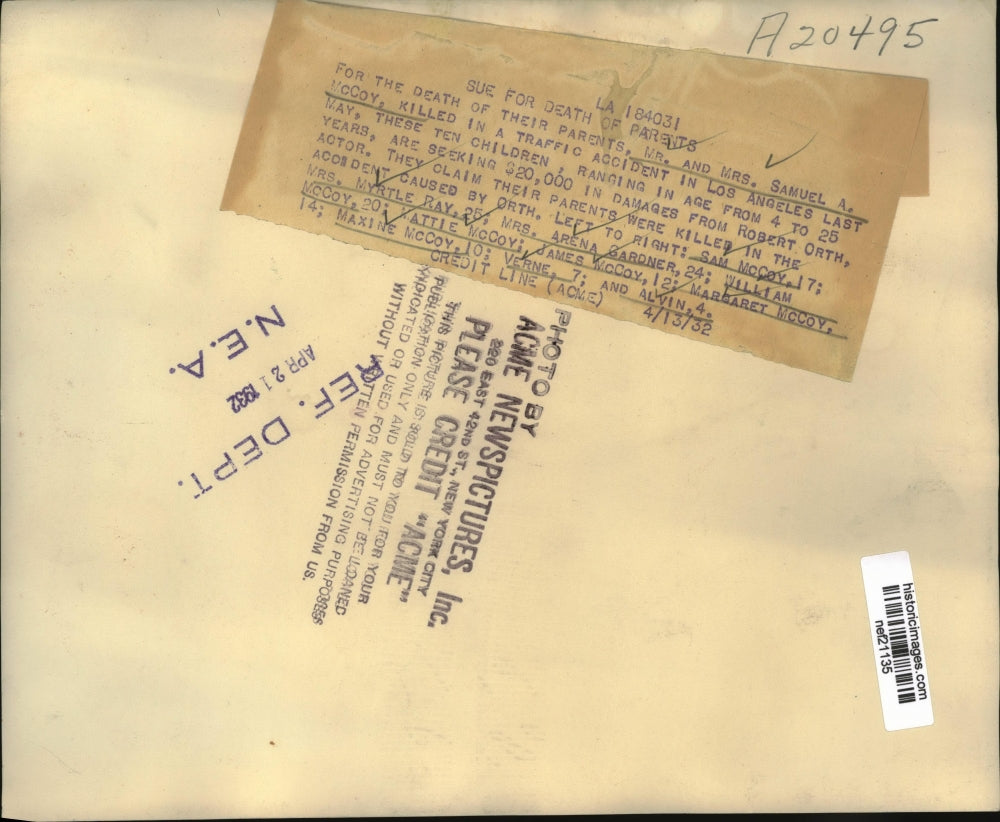 A20495
LA 184031
SUE FOR DEATH OF PARENTS
FOR THE DEATH OF THEIR PARENTS, MR. AND MRS. SAMUEL A.
McCOY, KILLED IN A TRAFFIC ACCIDENT IN LOS ANGELES LAST
MAY, THESE TEN CHILDREN, RANGING IN AGE FROM 4 TO 25
YEARS, ARE SEEKING $20,000 IN DAMAGES FROM ROBERT ORTH,
ACTOR. THEY CLAIM THEIR PARENTS WERE KILLED IN THE
ACCIDENT CAUSED BY ORTH. LEFT TO RIGHT: SAM McCOY, 17;
MRS. MYRTLE RAY, 25; MRS. ARENA GARDNER, 24; WILLIAM
McCOY, 20; HATTIE McCOY; JAMES McCOY, 12; MARGARET McCOY,
14; MAXINE McCOY, 10; VERNE, 7; AND ALVIN, 4.
CREDIT LINE (ACME) 4/13/32
PHOTO BY
ACME NEWSPICTURES, Inc.
220 EAST 42ND ST., NEW YORK CITY
PLEASE CREDIT "ACME"
THIS PICTURE IS SOLD TO YOU FOR YOUR
PUBLICATION ONLY AND MUST NOT BE LOANED
INDICATED OR USED FOR ADVERTISING PURPOSES
WITHOUT WRITTEN PERMISSION FROM US.
N.E.A.
APR 21 1932
REF. DEPT.
historicimages.com
nef21135